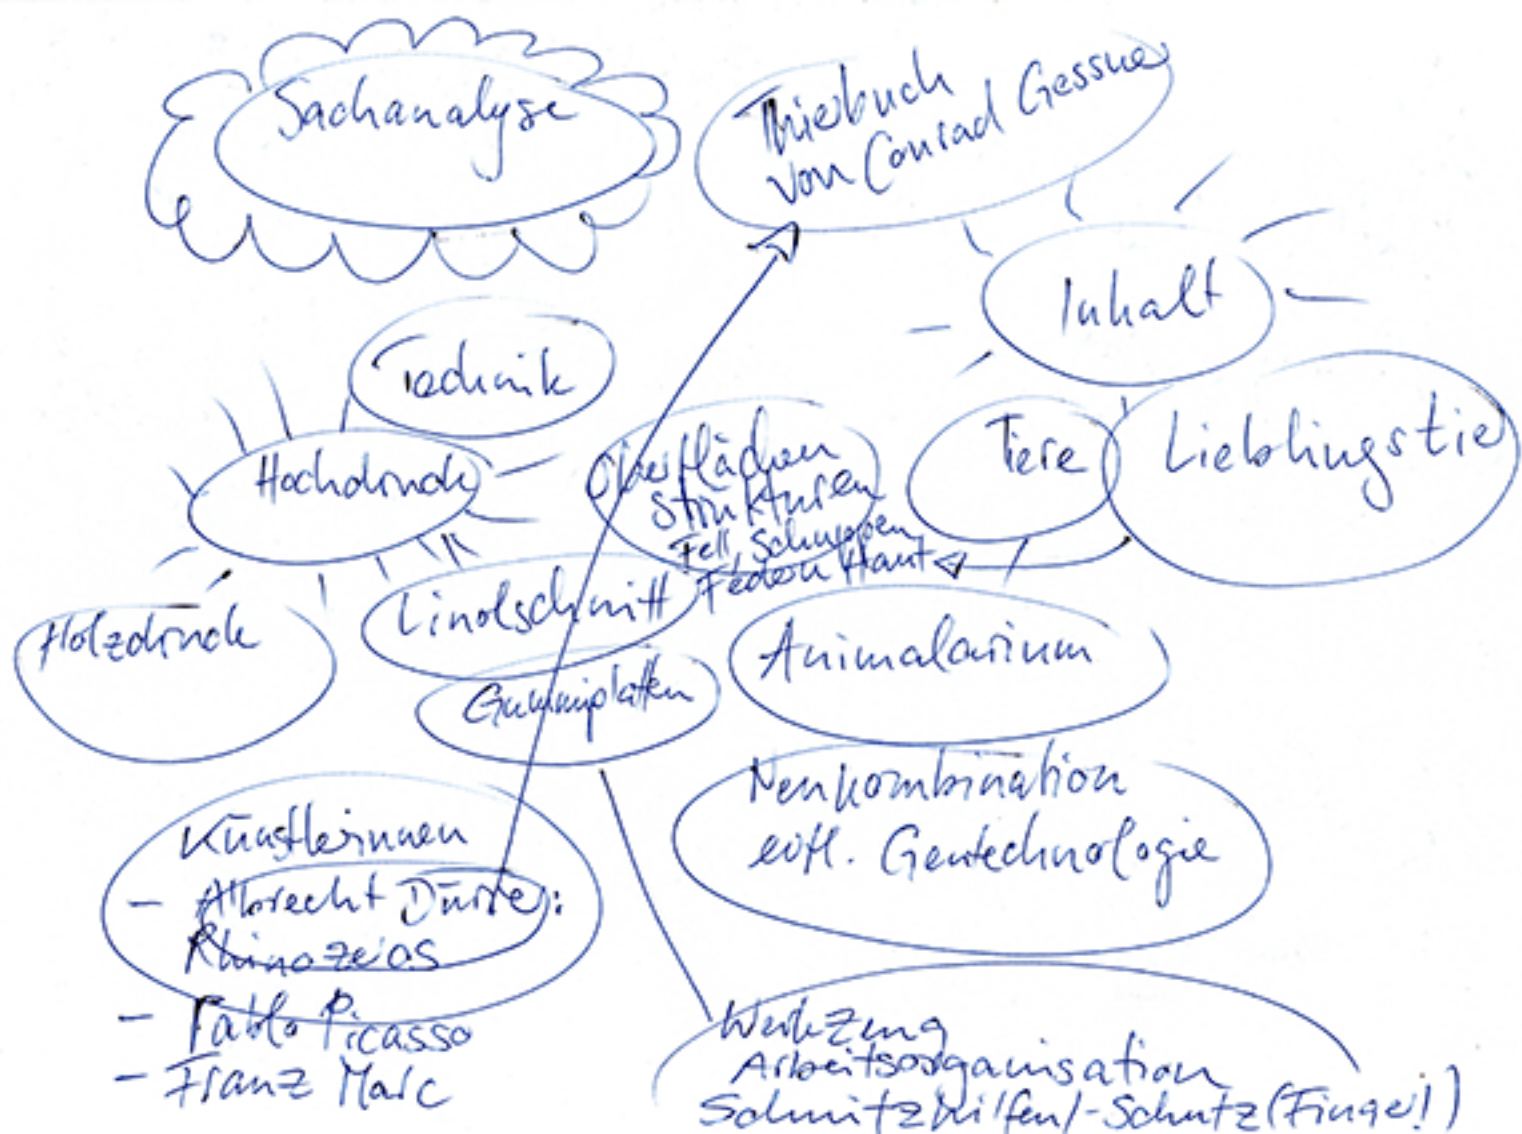 Sachanalyse
Thierbuch
von Conrad Gessner
Inhalt
Technik
Hochdruck
Oberflächen
Strukturen
Fell, Schuppen
Federn Haut
Tiere
Lieblingstier
Holzdruck
Linolschnitt
Gummiplatten
Animalarium
Neukombination
evtl. Gentechnologie
Künstlerinnen
- Albrecht Dürer:
Rhinozeros
- Pablo Picasso
- Franz Marc
Werkzeug
Arbeitsorganisation
Schnitzhilfen/-Schutz (Finger!)